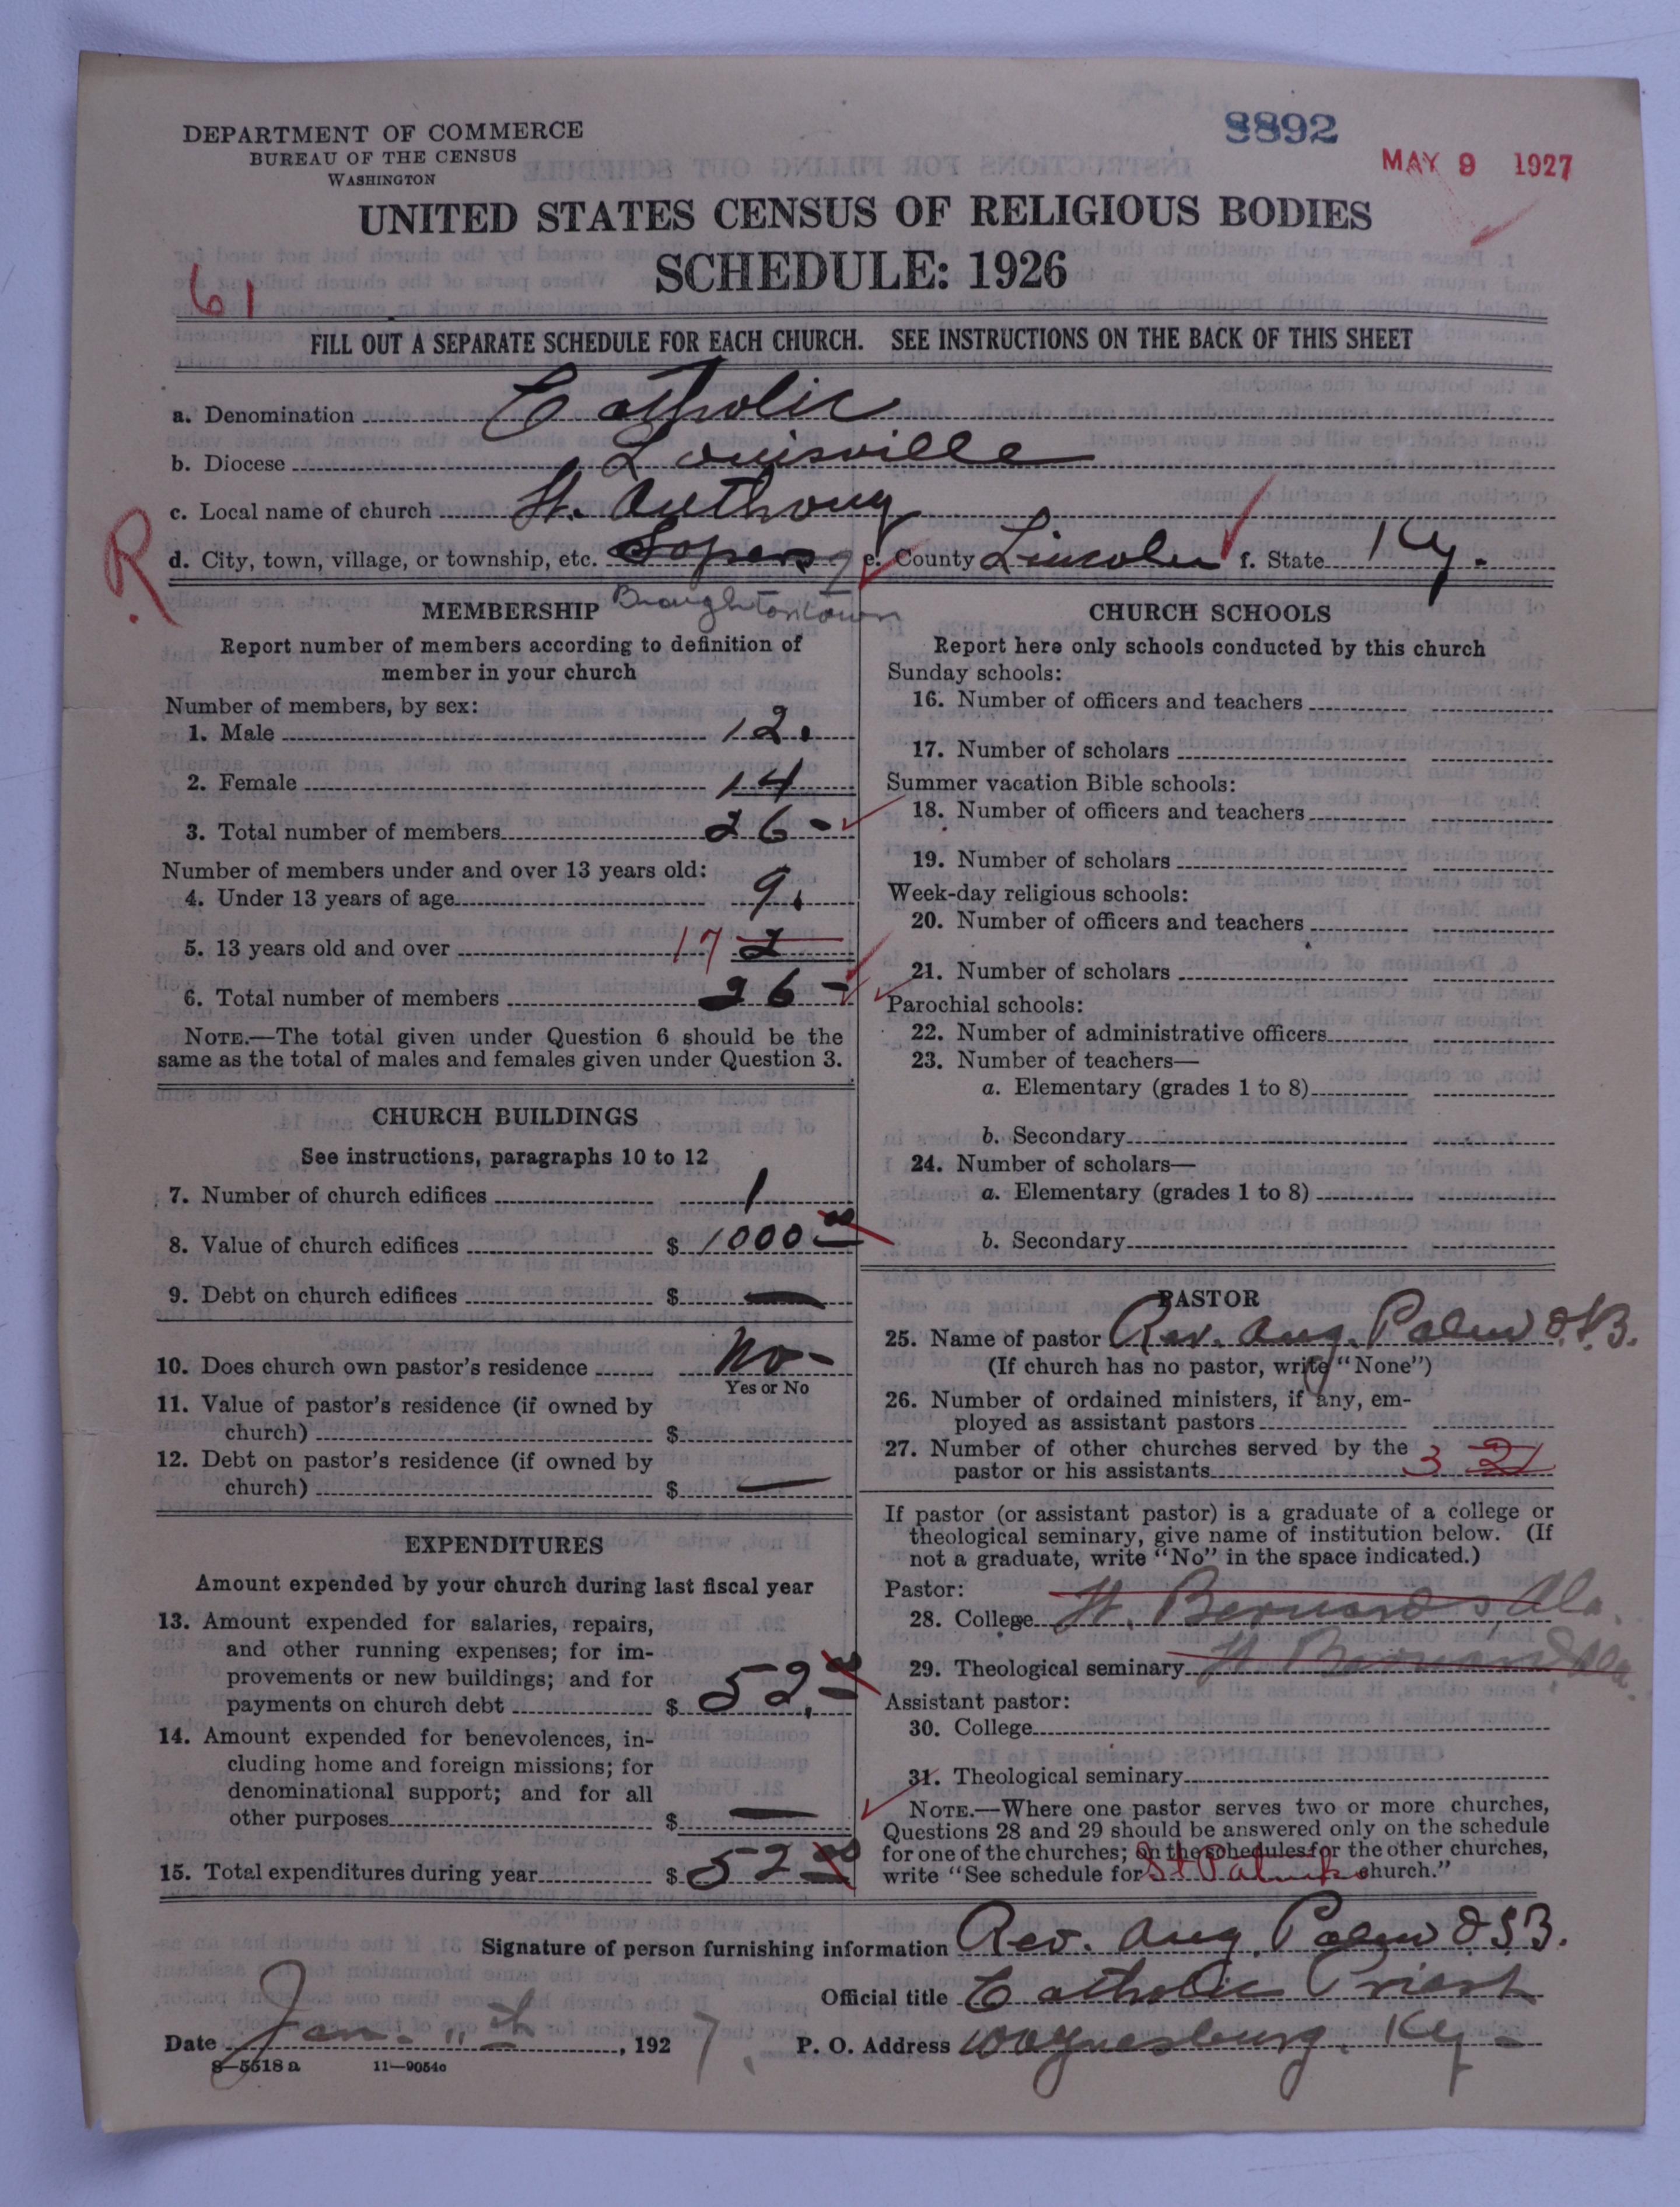 DEPARTMENT OF COMMERCE
BUREAU OF THE CENSUS
WASHINGTON
8892
MAY 9 1927
UNITED STATES CENSUS OF RELIGIOUS BODIES
SCHEDULE: 1926
61
FILL OUT A SEPARATE SCHEDULE FOR EACH CHURCH. SEE INSTRUCTIONS ON THE BACK OF THIS SHEET
a. Denomination Catholic
b. Diocese Louisville
c. Local name of church St. Anthony
R
d. City, town, village, or township, etc. e. County Lincoln f. State Ky.
Broughtontown
MEMBERSHIP
Report number of members according to definition of
member in your church
Number of members, by sex:
1. Male 12.
2. Female 14
3. Total number of members 26-
Number of members under and over 13 years old:
4. Under 13 years of age 9.
5. 13 years old and over 17
6. Total number of members 26-
NOTE.—The total given under Question 6 should be the
same as the total of males and females given under Question 3.
CHURCH BUILDINGS
See instructions, paragraphs 10 to 12
7. Number of church edifices 1
8. Value of church edifices $ 1000 00
9. Debt on church edifices $ —
10. Does church own pastor's residence No-
Yes or No
11. Value of pastor's residence (if owned by
church) $
12. Debt on pastor's residence (if owned by
church) $ —
EXPENDITURES
Amount expended by your church during last fiscal year
13. Amount expended for salaries, repairs,
and other running expenses; for im-
provements or new buildings; and for
payments on church debt $ 52.00
14. Amount expended for benevolences, in-
cluding home and foreign missions; for
denominational support; and for all
other purposes $ —
15. Total expenditures during year $ 52 00
CHURCH SCHOOLS
Report here only schools conducted by this church
Sunday schools:
16. Number of officers and teachers
17. Number of scholars
Summer vacation Bible schools:
18. Number of officers and teachers
19. Number of scholars
Week-day religious schools:
20. Number of officers and teachers
21. Number of scholars
Parochial schools:
22. Number of administrative officers
23. Number of teachers—
a. Elementary (grades 1 to 8)
b. Secondary
24. Number of scholars—
a. Elementary (grades 1 to 8)
b. Secondary
PASTOR
25. Name of pastor Rev. Aug. Palm O.S.B.
(If church has no pastor, write "None")
26. Number of ordained ministers, if any, em-
ployed as assistant pastors
27. Number of other churches served by the
pastor or his assistants 3 2
If pastor (or assistant pastor) is a graduate of a college or
theological seminary, give name of institution below. (If
not a graduate, write "No" in the space indicated.)
Pastor:
28. College St. Bernard's, Ala.
29. Theological seminary St Bernard Ala.
Assistant pastor:
30. College
31. Theological seminary
NOTE.—Where one pastor serves two or more churches,
Questions 28 and 29 should be answered only on the schedule
for one of the churches; on the schedules for the other churches,
write "See schedule for St Patricks church."
Signature of person furnishing information Rev. Aug. Palm O.S.B.
Official title Catholic Priest
Date Jan. 11th, 1927. P. O. Address Waynesburg, Ky-
8—5518 a 11—9054c